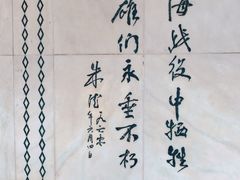 海战役中牺牲
雄们永垂不朽
朱德
一九六零
年六月四日